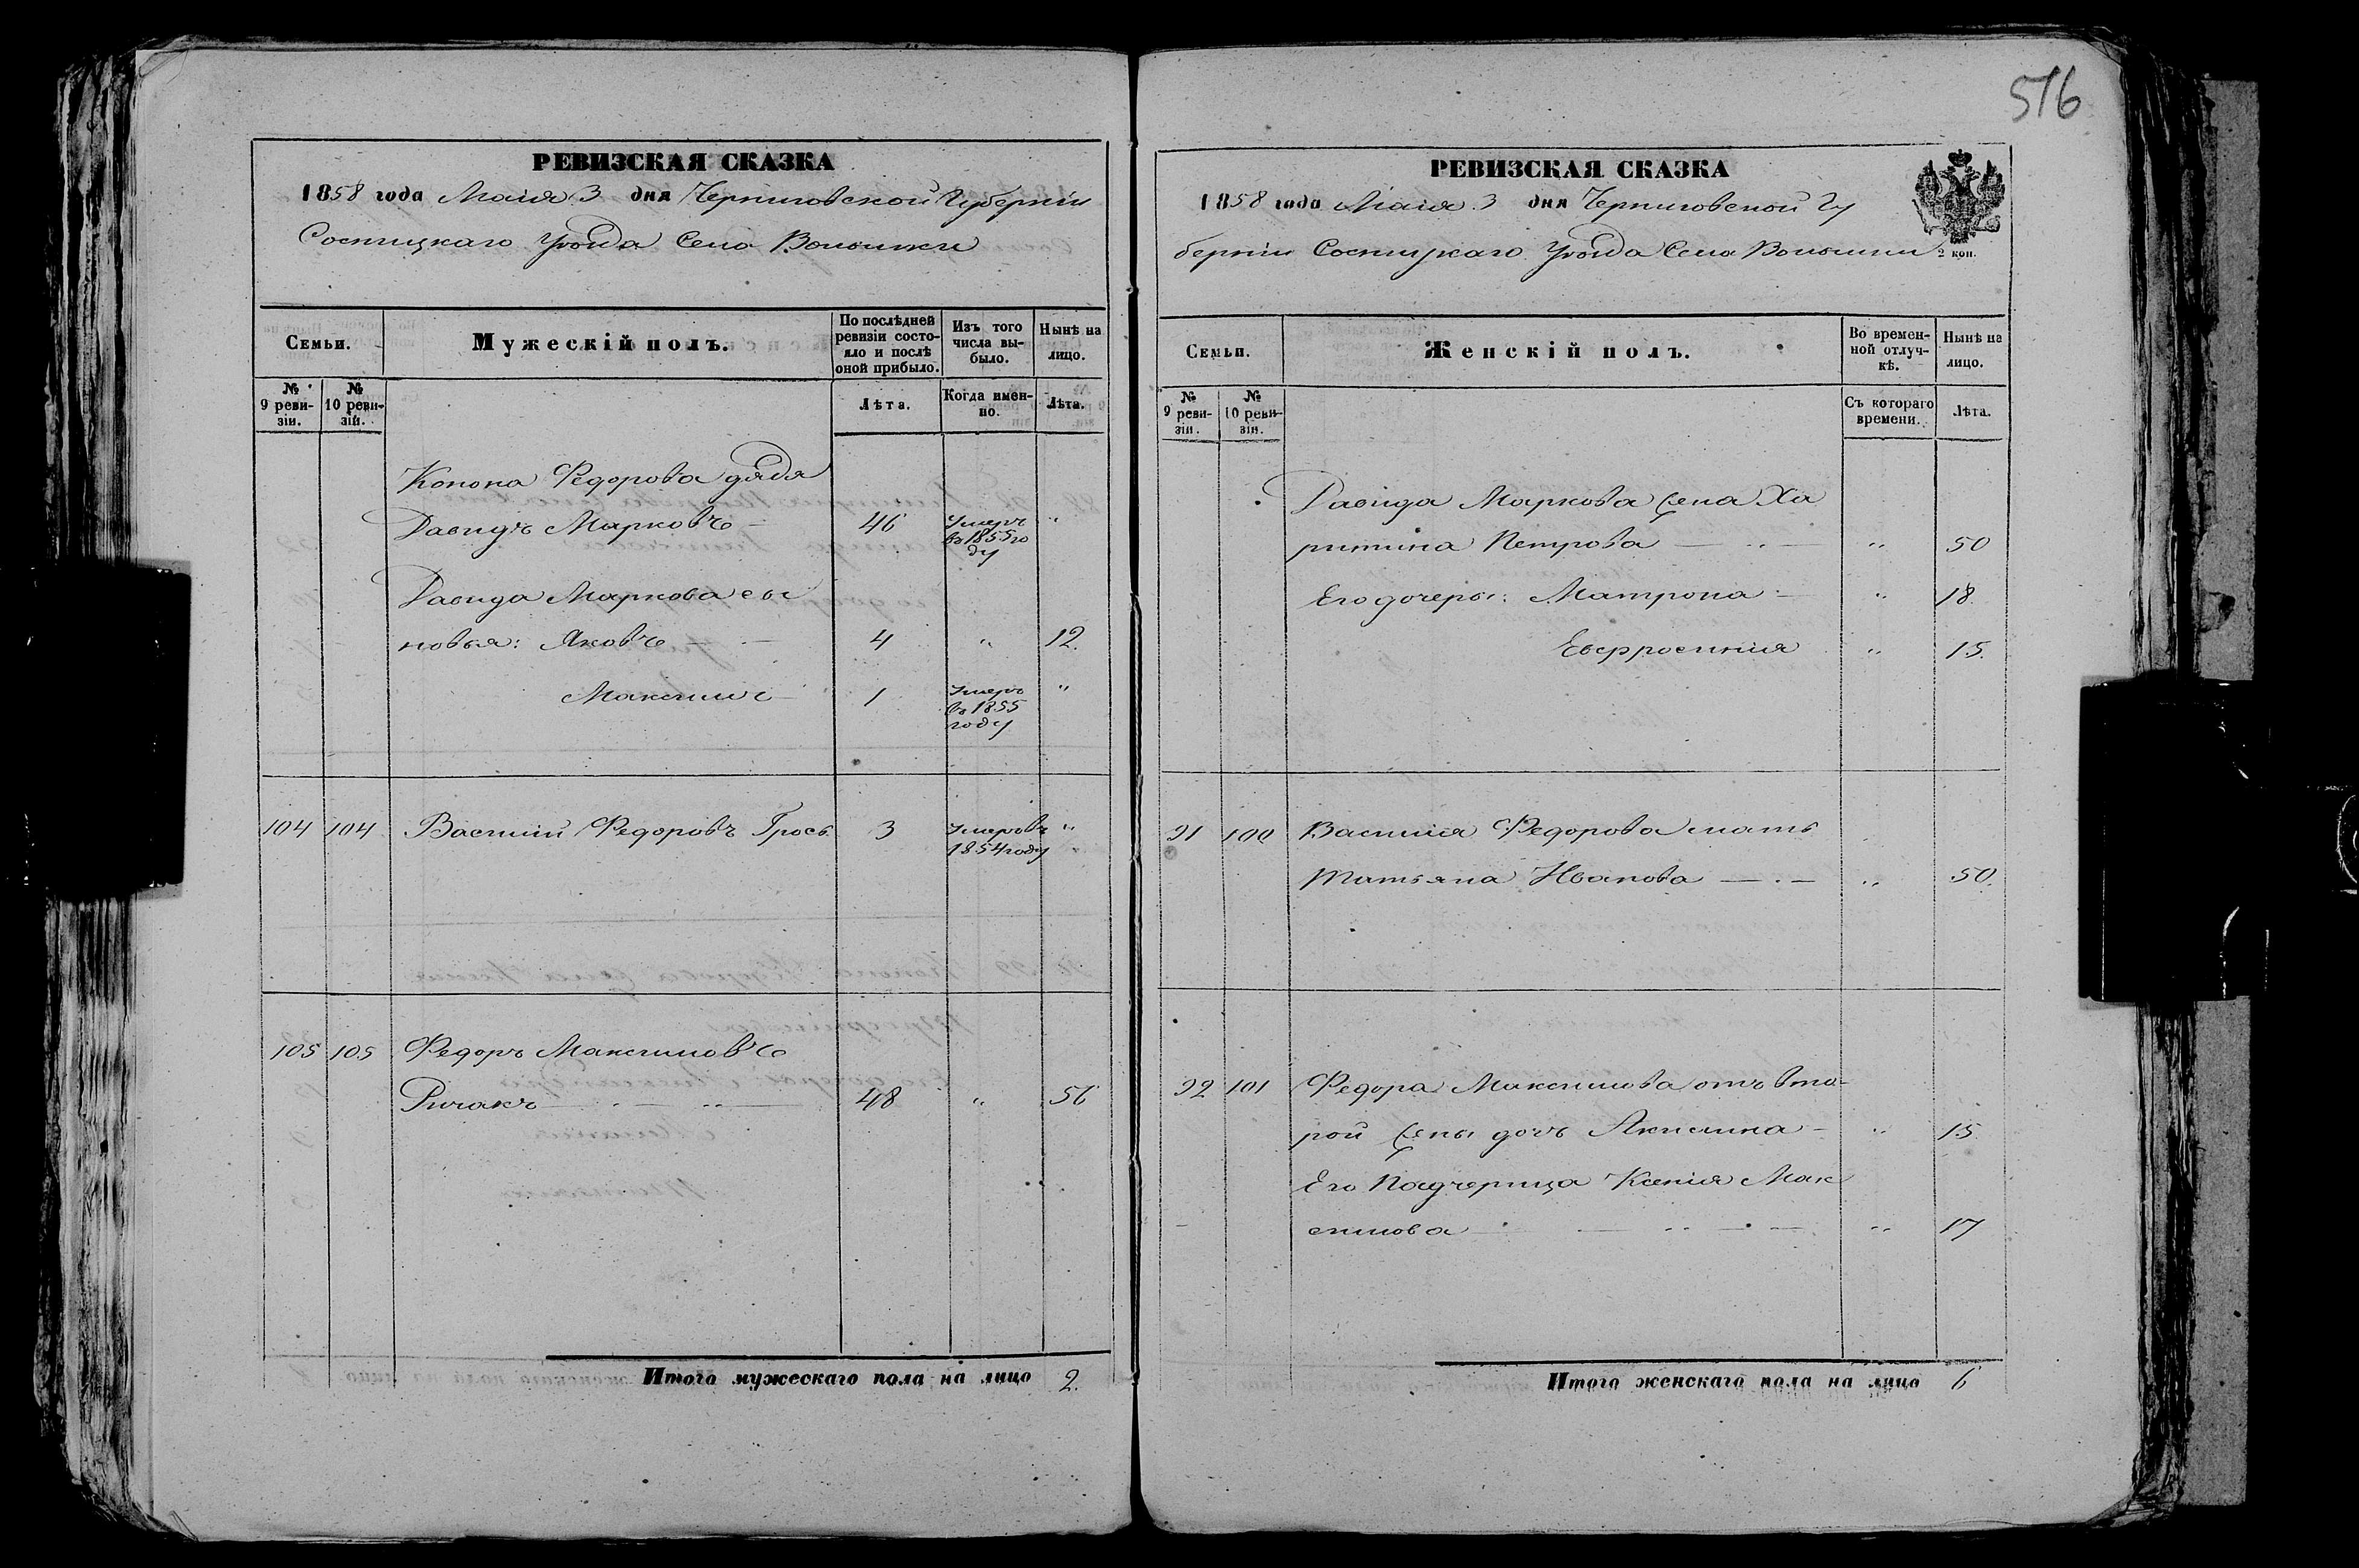 516
РЕВИЗСКАЯ СКАЗКА
1858 года Маія 3 дня Черниговской Губерніи
Сосницкаго Уѣзда Села Волынки
Семьи.
Мужескій полъ.
По послѣдней ревизіи состояло и послѣ оной прибыло.
Изъ того числа выбыло.
Нынѣ на лицо.
№ 9 ревизіи.
№ 10 ревизіи.
Лѣта.
Когда именно.
Лѣта.
Конона Федорова дядя
Давидъ Марковъ 46 Умеръ въ 1855 году "
Давида Маркова сы
новья: Яковъ 4 " 12.
Максимъ 1 Умеръ въ 1855 году "
104 104 Василий Федоровъ 3 Умеръ въ 1854 году "
105 105 Федоръ Максимовъ
48 " 56
Итого мужескаго пола на лицо 2.
РЕВИЗСКАЯ СКАЗКА
1858 года Маія 3 дня Черниговской Гу
берніи Сосницкаго Уѣзда Села Волынки
2 коп.
Семьи.
Женскій полъ.
Во временной отлучкѣ.
Нынѣ на лицо.
№ 9 ревизіи.
№ 10 ревизіи.
Съ котораго времени.
Лѣта.
Давида Маркова жена Ха
ритина Петрова " 50
Его дочери: Матрона " 18.
Евфросинія " 15.
91 100 Василия Федорова мать
Татьяна Иванова " 50.
92 101 Федора Максимова отъ вто-
рой жены дочь Акилина " 15.
Его Падчерица Ксенія Мак
симова " 17
Итого женскаго пола на лицо 6